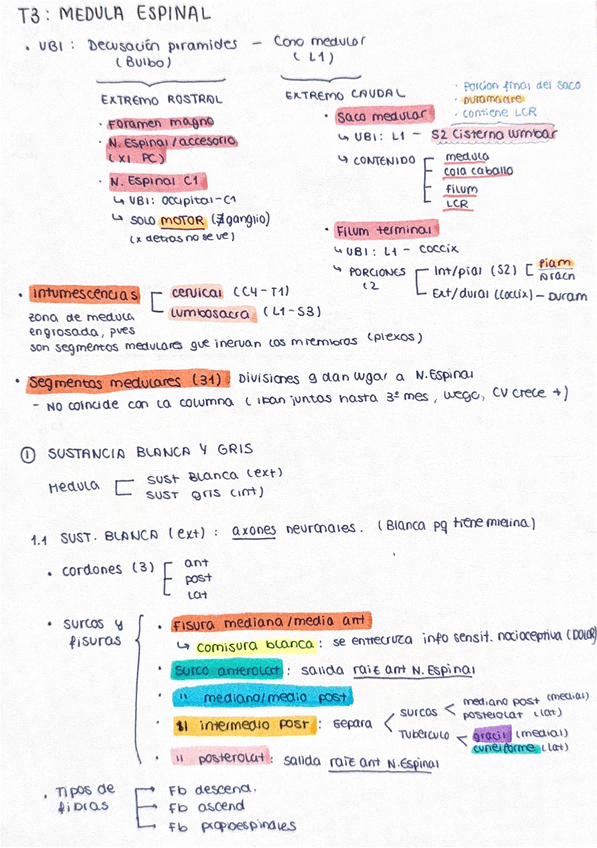 T3: MEDULA ESPINAL
• UBI: Decusación piramides — Cono medular
(Bulbo) (L1)
EXTREMO ROSTRAL
• Foramen magno
• N. Espinal/accesorio
(XI PC)
• N. Espinal C1
↳ UBI: Occipital-C1
↳ SOLO MOTOR (∄ganglio)
(x detras no se ve)
EXTREMO CAUDAL
• Porcion final del saco
• Duramadre
• contiene LCR
• Saco medular
↳ UBI: L1 - S2 Cisterna lumbar
↳ CONTENIDO
medula
cola caballo
filum
LCR
• Filum terminal
↳ UBI: L1 - coccix
↳ PORCIONES
(2
Int/pial (S2) [ Piam
Aracn
Ext/dural (coccix) — Duram
• Intumescencias
cervical (C4-T1)
lumbosacra (L1-S3)
zona de medula
engrosada, pues
son segmentos medulares que inervan los miembros (plexos)
• Segmentos medulares (31): Divisiones q dan lugar a N.Espinal
- No coincide con la columna (iban juntas hasta 3er mes, luego, CV crece +)
① SUSTANCIA BLANCA Y GRIS
Medula
SUST BLANCA (ext)
SUST GRIS (int)
1.1 SUST. BLANCA (ext): axones neuronales. (Blanca pq tiene mielina)
• cordones (3)
ant
post
lat
• Surcos y
fisuras
• Fisura mediana/media ant
↳ comisura blanca: se entrecruza info sensit. nociceptiva (DOLOR)
• Surco anterolat: salida raiz ant N. Espinal
• " mediano/medio post
• " intermedio post: separa
surcos < mediano post (medial)
posterolat (lat)
Tuberculo < gracil (medial)
cuneiforme (lat)
• " posterolat: salida raiz ant N.Espinal
• Tipos de
fibras
Fb descend.
Fb ascend
Fb propioespinales